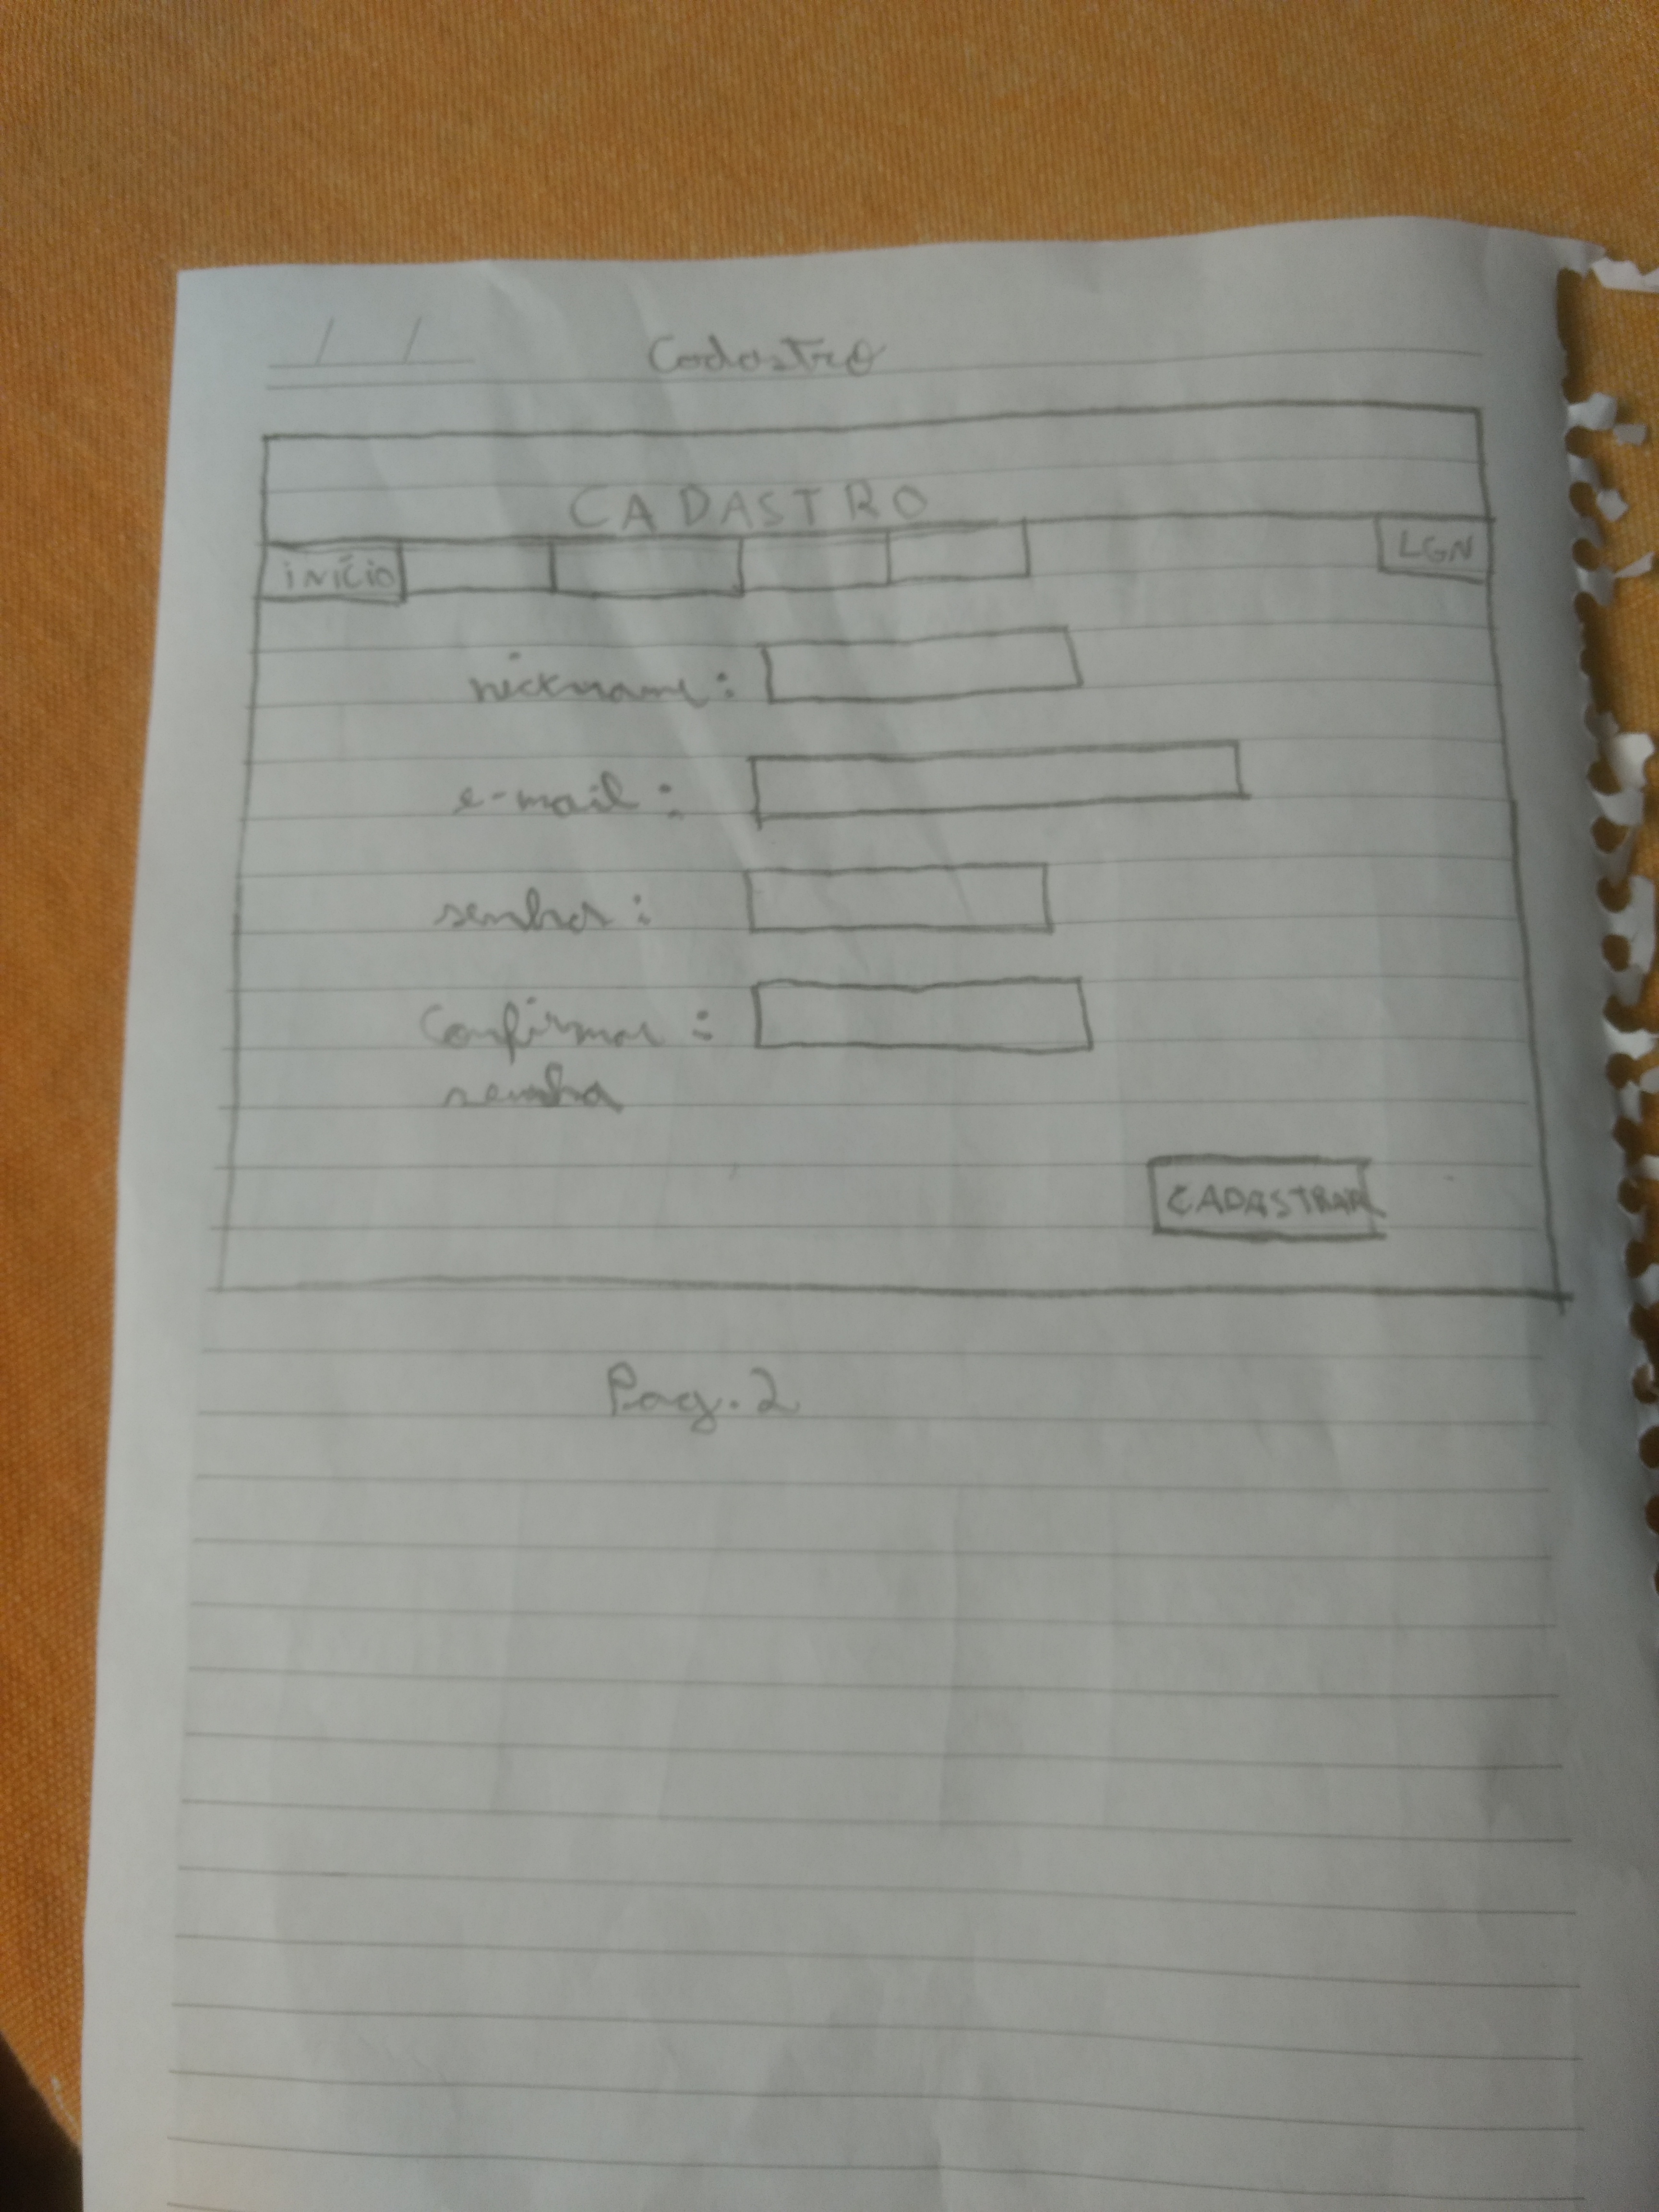 / /
Cadastro
CADASTRO
INÍCIO
LGN
nickname:
e-mail:
senha:
Confirmar:
senha
CADASTRAR
Pag. 2